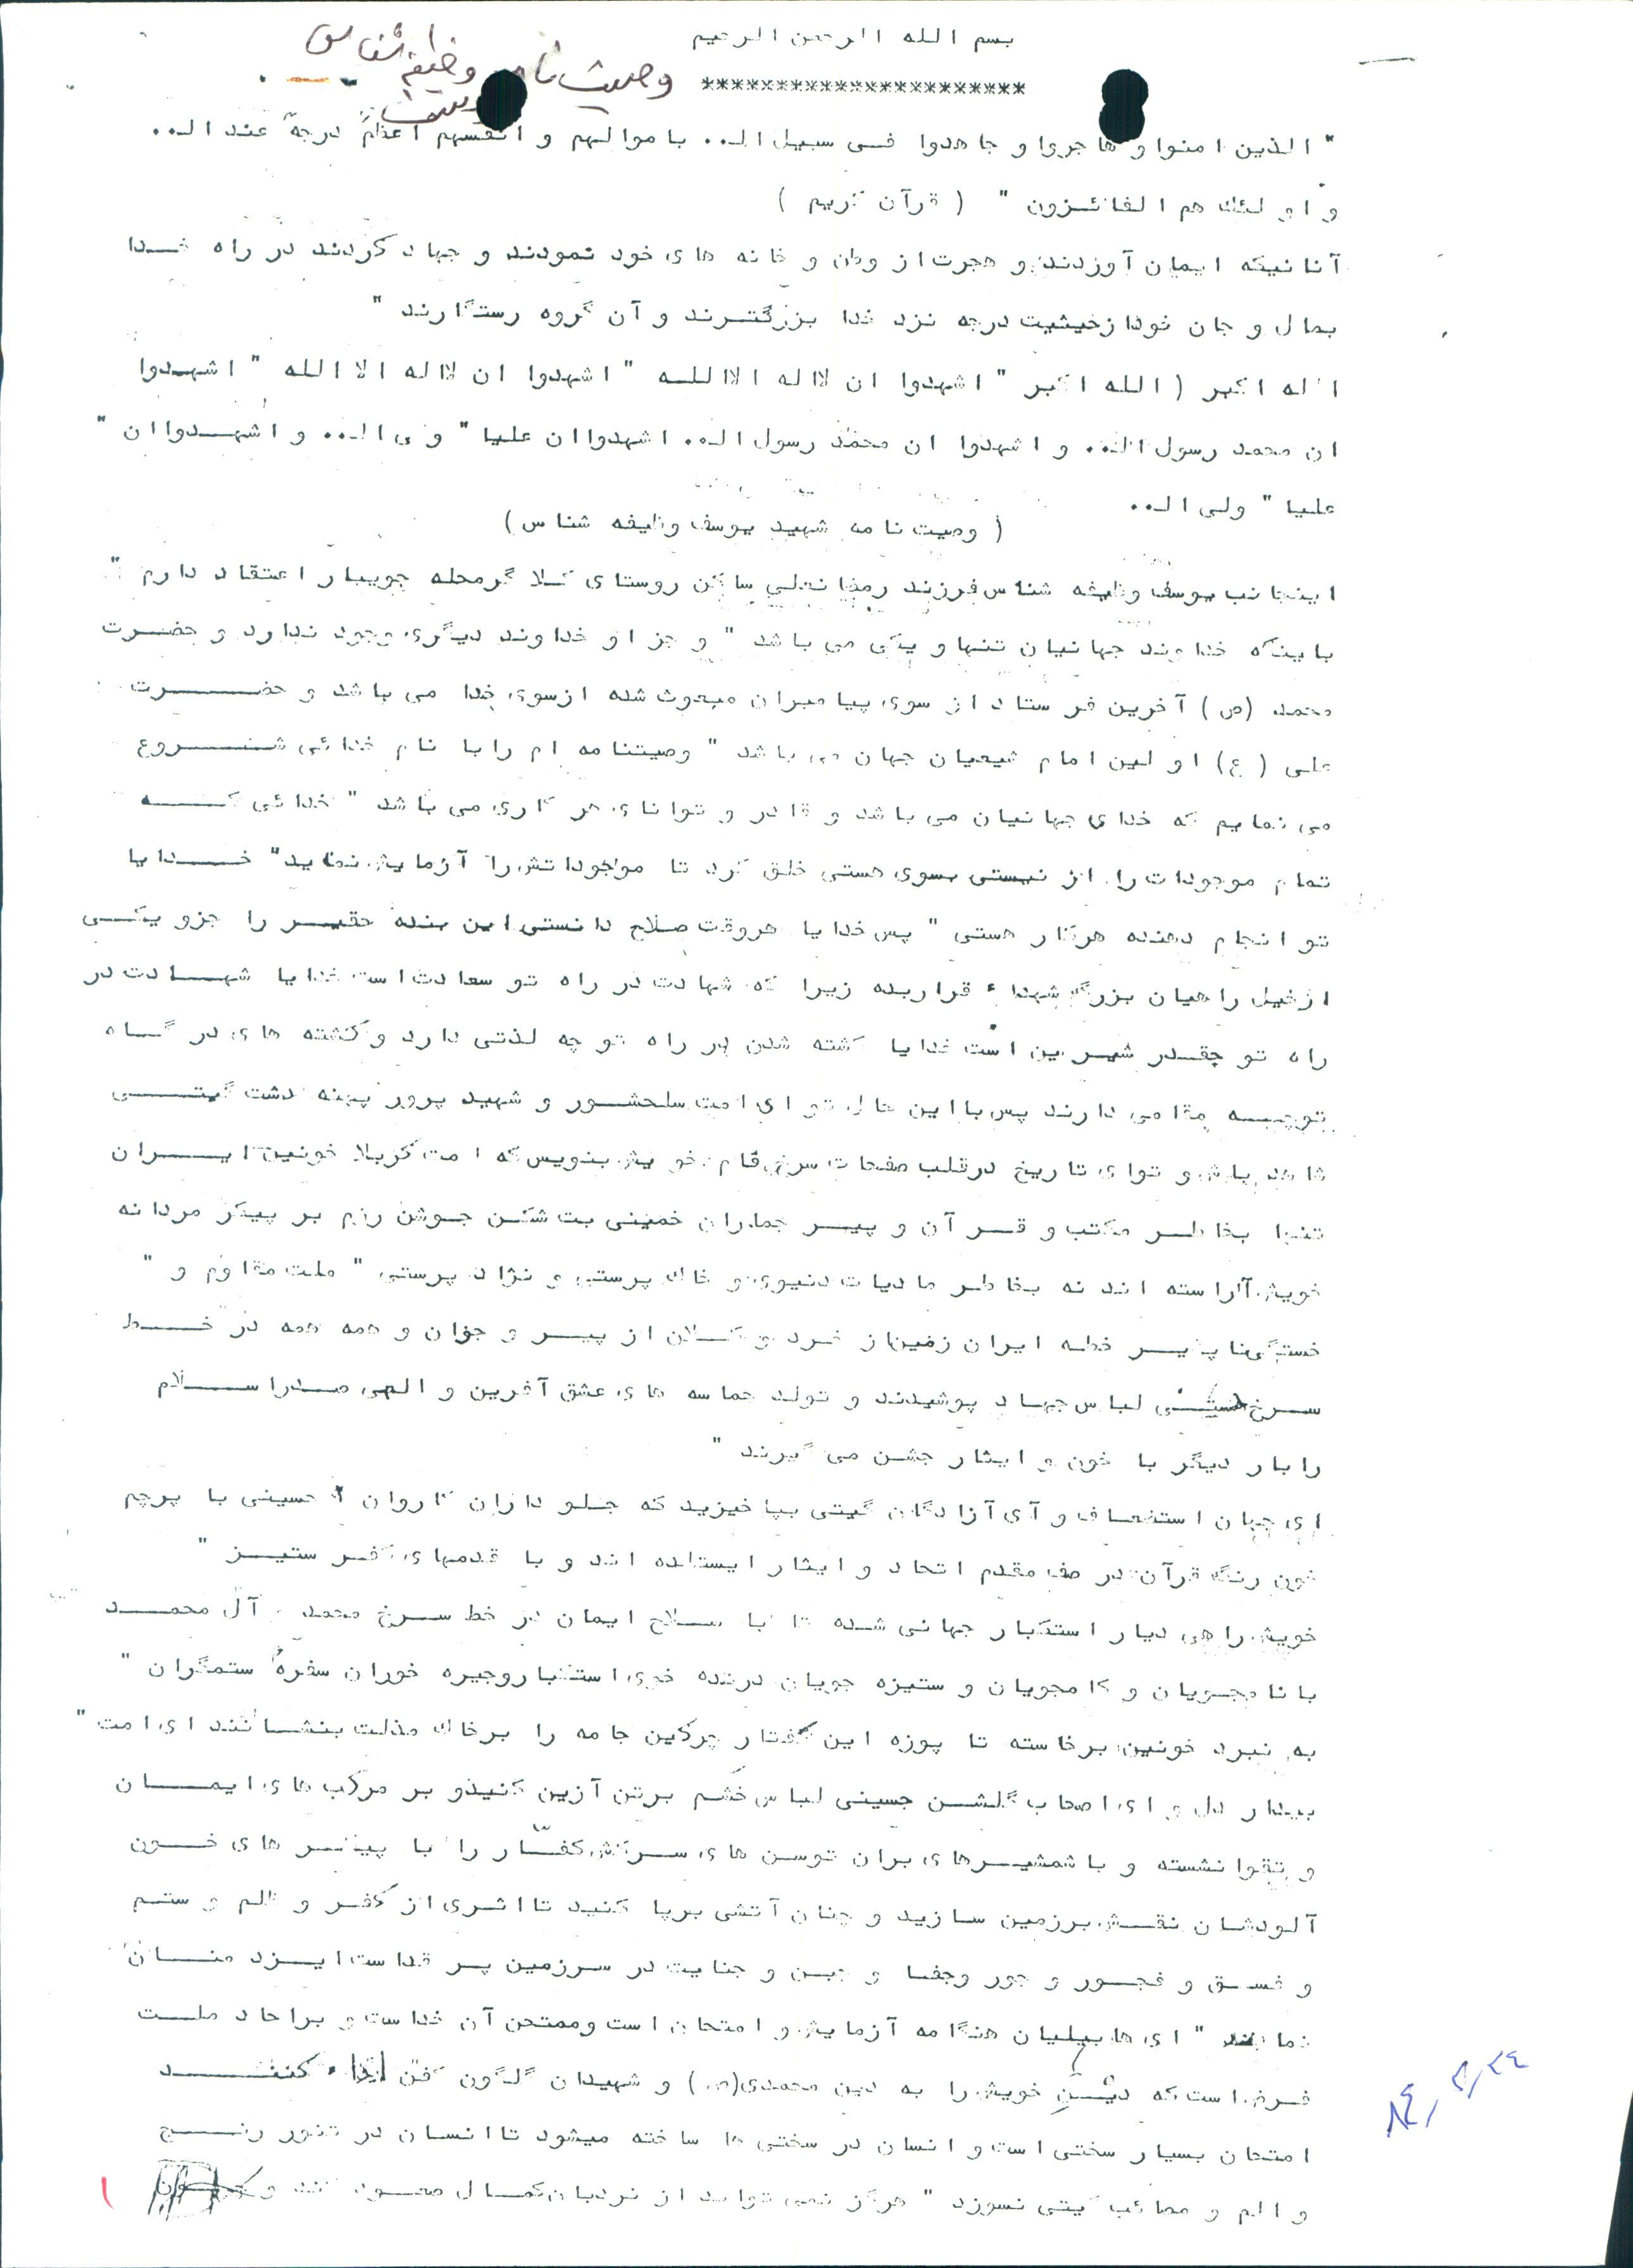 بسم الله الرحمن الرحیم
وصیت نامه وظیفه شناس
یوسف
**********************
" الذین امنوا و هاجروا و جاهدوا فی سبیل ال.. باموالهم و انفسهم اعظم درجه عند ال..
و اولئك هم الفائزون " ( قرآن کریم )
آنانیکه ایمان آوردند و هجرت از وطن و خانه های خود نمودند و جهاد کردند در راه خدا
بمال و جان خود از حیثیت درجه نزد خدا بزرگترند و آن گروه رستگارند "
الله اکبر ( الله اکبر " اشهدوا ان لااله الاالله " اشهدوا ان لااله الا الله " اشهدوا
ان محمد رسول ال.. و اشهدوا ان محمد رسول ال.. اشهدوا ان علیا " ولی ال.. و اشهدوا ان "
علیا " ولی ال..
( وصیت نامه شهید یوسف وظیفه شناس )
اینجانب یوسف وظیفه شناس فرزند رمضانعلی ساکن روستای کلاگرمحله جویبار اعتقاد دارم "
باینکه خداوند جهانیان تنها و یکی می باشد " و جز او خداوند دیگری وجود ندارد و حضرت
محمد (ص) آخرین فرستاد از سوی پیامبران مبعوث شده ازسوی خدا می باشد و حضرت
علی (ع) اولین امام شیعیان جهان می باشد " وصیتنامه ام را با نام خدائی شروع
می نمایم که خدای جهانیان می باشد و قادر و توانای هر کاری می باشد " خدائی که
تمام موجودات را از نیستی بسوی هستی خلق کرد تا موجوداتش را آزمایش نماید " خدایا
تو انجام دهنده هرکار هستی " پس خدایا هروقت صلاح دانستی این بنده حقیر را جزو یکی
ازخیل راهیان بزرگ شهداء قرار بده زیرا که شهادت در راه تو سعادت است خدایا شهادت در
راه تو چقدر شیرین است خدایا کشته شدن در راه تو چه لذتی دارد و کشته های درگاه
توچه مقامی دارند پس با این حال تو ای امت سلحشور و شهید پرور پهنه دشت گیتی
شاهد باش و تو ای تاریخ درقلب صفحات سرخ فام خویش بنویس که امت کربلا خونین ایران
تنها بخاطر مکتب و قرآن و پیر جماران خمینی بت شکن جوشن رزم بر پیکر مردانه
خویش آراسته اند نه بخاطر مادیات دنیوی و خاك پرستی و نژاد پرستی " ملت مقاوم و "
خستگی ناپذیر خطه ایران زمین از خرد و کلان از پیر و جوان و همه همه در خط
سرخ حسینی لباس جهاد پوشیدند و تولد حماسه های عشق آفرین و الهی صدر اسلام
را بار دیگر با خون و ایثار جشن می گیرند "
ای جهان استضعاف و آی آزادگان گیتی بپا خیزید که جلو داران کاروان حسینی با پرچم
خون رنگ قرآن در صف مقدم اتحاد و ایثار ایستاده اند و با قدمهای کفر ستیز "
خویش راهی دیار استکبار جهانی شده تا با سلاح ایمان در خط سرخ محمد و آل محمد
با نامجویان و کامجویان و ستیزه جویان درنده خوی استکبار وجیره خوران سفره ستمگران "
به نبرد خونین برخاسته تا پوزه این کفتار چرکین جامه را برخاك مذلت بنشانند ای امت "
بیدار دل و ای اصحاب گلشن حسینی لباس خشم برتن آزین کنیدو بر مرکب های ایمان
و تقوا نشسته و با شمشیرهای بران توسن های سرکش کفار را با پیکر های خون
آلودشان نقش برزمین سازید و چنان آتشی برپا کنید تا اثری از کفر و ظلم و ستم
و فسق و فجور و جور وجفا و جبن و جنایت در سرزمین پر قداست ایزد منان
نماند " ای هابیلیان هنگامه آزمایش و امتحان است وممتحن آن خداست و براحاد ملت
فرض است که دین خویش را به دین محمدی(ص) و شهیدان گلگون کفن ادا کنند
امتحان بسیار سختی است و انسان در سختی ها ساخته میشود تا انسان در تنور رنج
و الم و مصائب گیتی نسوزد " هرگز نمی تواند از نردبان کمال صعود کند و
۸۴/۳/۲۴
۱